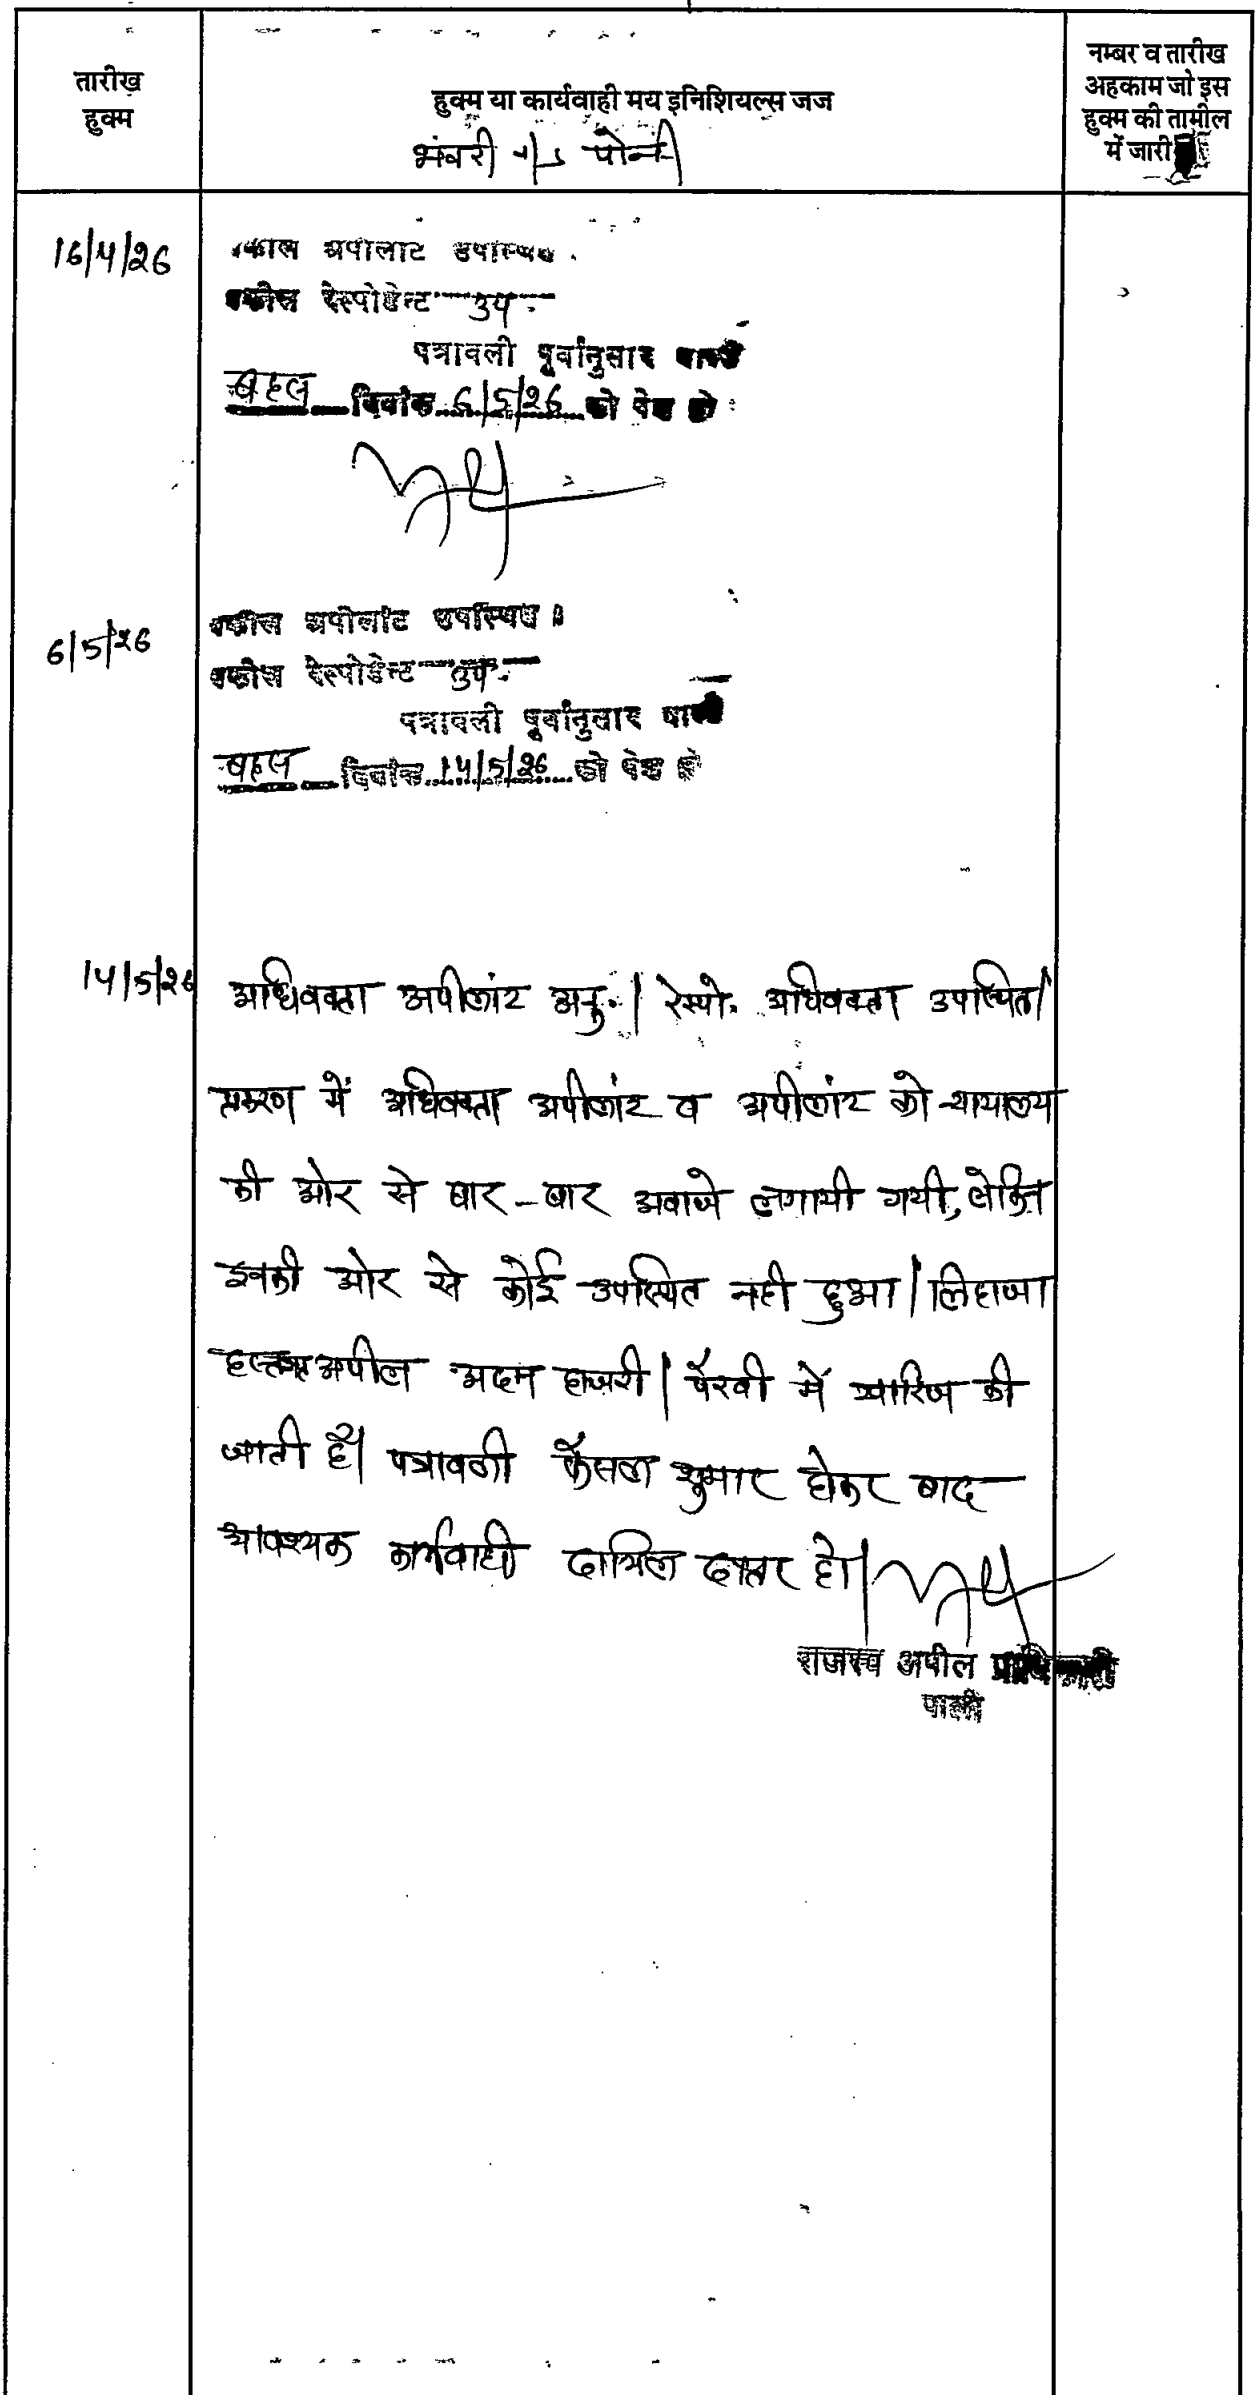 तारीख
हुक्म
हुक्म या कार्यवाही मय इनिशियल्स जज
भंवरी
नम्बर व तारीख
अहकाम जो इस
हुक्म की तामील
में जारी
16/4/26
वकील अपीलांट उपस्थित
वकील रेस्पोडेन्ट उप.
पत्रावली पूर्वानुसार वास्ते
बहस दिनांक 6/5/26 को पेश हो
6/5/26
वकील अपीलांट उपस्थित
वकील रेस्पोडेन्ट उप.
पत्रावली पूर्वानुसार वास्ते
बहस दिनांक 14/5/26 को पेश हो
14/5/26
अधिवक्ता अपीलांट अनु.। रेस्पो. अधिवक्ता उपस्थित।
प्रकरण में अधिवक्ता अपीलांट व अपीलांट को न्यायालय
की ओर से बार-बार अवाजे लगायी गयी, लेकिन
इनकी ओर से कोई उपस्थित नही हुआ। लिहाजा
हस्तगत अपील अदम हाजरी/पैरवी में खारिज की
जाती है। पत्रावली फैसल शुमार होकर बाद
आवश्यक कार्यवाही दाखिल दफ्तर हो।
राजस्व अपील प्राधिकारी
पाली